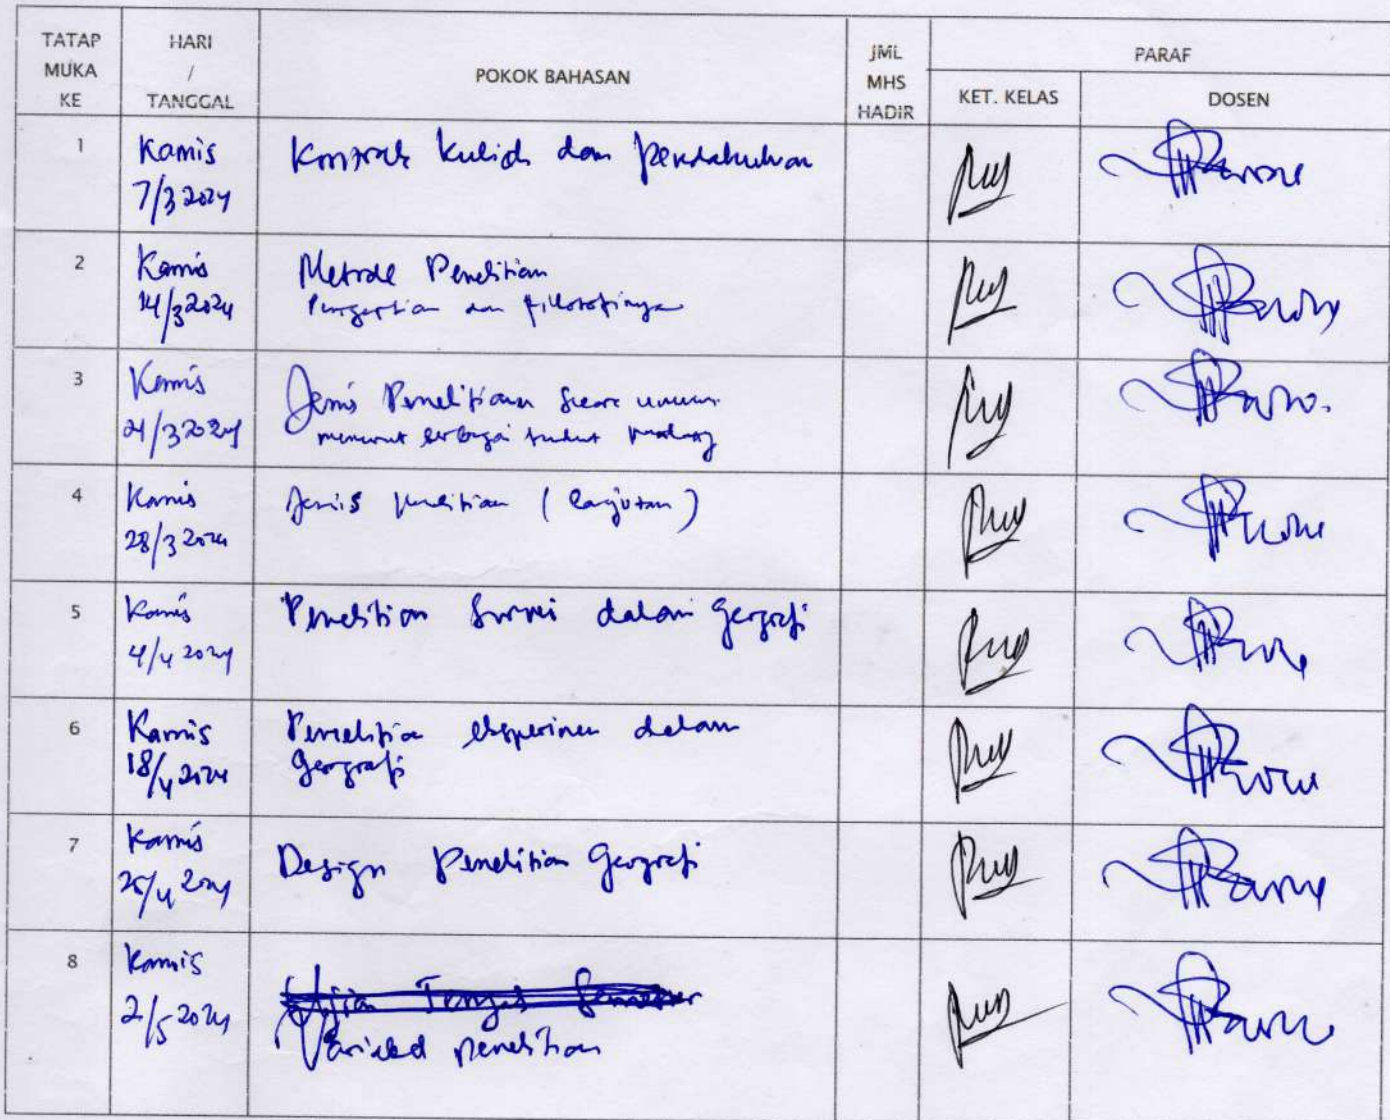 TATAP MUKA KE
HARI / TANGGAL
POKOK BAHASAN
JML MHS HADIR
PARAF
KET. KELAS
DOSEN
1
Kamis
7/3 2024
Kontrak Kuliah dan pendahuluan
2
Kamis
14/3 2024
Metode Penelitian
Pengertian dan filosofinya
3
Kamis
21/3 2024
Jenis Penelitian secara umum
menurut berbagai sudut pandang
4
Kamis
28/3 2024
Jenis penelitian (lanjutan)
5
Kamis
4/4 2024
Penelitian Survei dalam Geografi
6
Kamis
18/4 2024
Penelitian eksperimen dalam
Geografi
7
Kamis
25/4 2024
Design Penelitian Geografi
8
Kamis
2/5 2024
Ujian Tengah Semester
Variabel penelitian